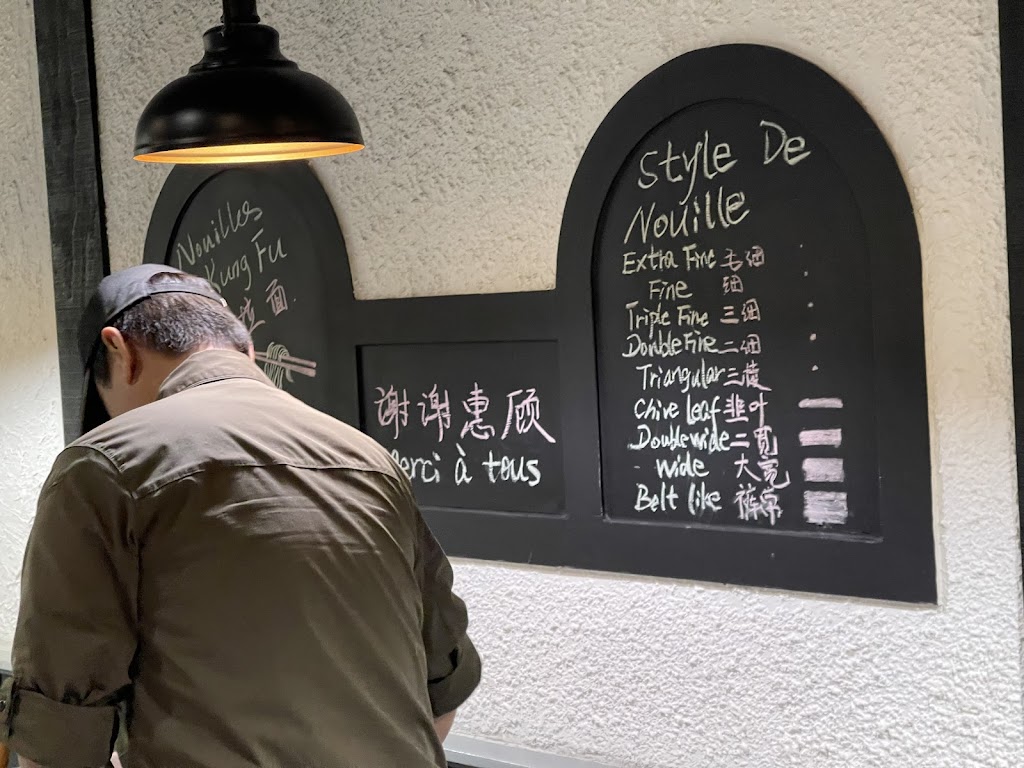 Nouilles
Kung Fu
拉面
谢谢惠顾
Merci à tous
Style De
Nouille
Extra Fine 毛细
Fine 细
Triple Fine 三细
Double Fine 二细
Triangular 三棱
Chive Leaf 韭叶
Double wide 二宽
wide 大宽
Belt like 裤带